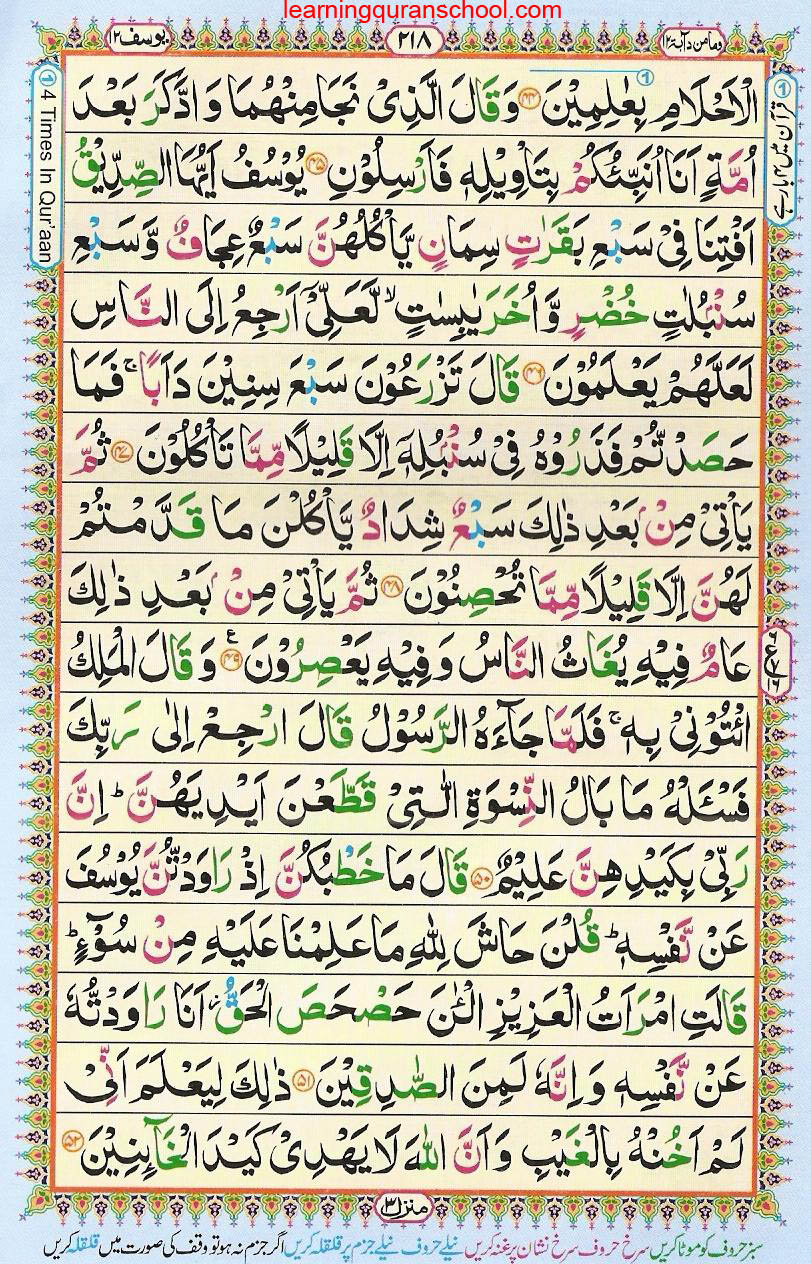 learningquranschool.com
يوسف ١٢
٢١٨
وما من دآبة ١٢
① 4 Times In Qur'aan
① قرآن میں ۴ بار ہے
الْاَحْلَامِ بِعٰلِمِيْنَ ﴿۴۴﴾ وَقَالَ الَّذِىْ نَجَا مِنْهُمَا وَادَّكَرَ بَعْدَ
اُمَّةٍ اَنَا اُنَبِّئُكُمْ بِتَاْوِيْلِهٖ فَاَرْسِلُوْنِ ﴿۴۵﴾ يُوْسُفُ اَيُّهَا الصِّدِّيْقُ
اَفْتِنَا فِىْ سَبْعِ بَقَرٰتٍ سِمَانٍ يَّاْكُلُهُنَّ سَبْعٌ عِجَافٌ وَّسَبْعِ
سُنْۢبُلٰتٍ خُضْرٍ وَّاُخَرَ يٰبِسٰتٍ ۙ لَّعَلِّىْۤ اَرْجِعُ اِلَى النَّاسِ
لَعَلَّهُمْ يَعْلَمُوْنَ ﴿۴۶﴾ قَالَ تَزْرَعُوْنَ سَبْعَ سِنِيْنَ دَاَبًا ۚ فَمَا
حَصَدْتُّمْ فَذَرُوْهُ فِىْ سُنْۢبُلِهٖۤ اِلَّا قَلِيْلًا مِّمَّا تَاْكُلُوْنَ ﴿۴۷﴾ ثُمَّ
يَاْتِىْ مِنْۢ بَعْدِ ذٰلِكَ سَبْعٌ شِدَادٌ يَّاْكُلْنَ مَا قَدَّمْتُمْ
لَهُنَّ اِلَّا قَلِيْلًا مِّمَّا تُحْصِنُوْنَ ﴿۴۸﴾ ثُمَّ يَاْتِىْ مِنْۢ بَعْدِ ذٰلِكَ
عَامٌ فِيْهِ يُغَاثُ النَّاسُ وَفِيْهِ يَعْصِرُوْنَ ﴿۴۹﴾ ع وَقَالَ الْمَلِكُ
ائْتُوْنِىْ بِهٖ ۚ فَلَمَّا جَآءَهُ الرَّسُوْلُ قَالَ ارْجِعْ اِلٰى رَبِّكَ
فَسْئَلْهُ مَا بَالُ النِّسْوَةِ الّٰتِىْ قَطَّعْنَ اَيْدِيَهُنَّ ؕ اِنَّ
رَبِّىْ بِكَيْدِهِنَّ عَلِيْمٌ ﴿۵۰﴾ قَالَ مَا خَطْبُكُنَّ اِذْ رَاوَدْتُّنَّ يُوْسُفَ
عَنْ نَّفْسِهٖ ؕ قُلْنَ حَاشَ لِلّٰهِ مَا عَلِمْنَا عَلَيْهِ مِنْ سُوْٓءٍ ؕ
قَالَتِ امْرَاَتُ الْعَزِيْزِ الْـٰٔنَ حَصْحَصَ الْحَقُّ ؗ اَنَا رَاوَدْتُّهٗ
عَنْ نَّفْسِهٖ وَاِنَّهٗ لَمِنَ الصّٰدِقِيْنَ ﴿۵۱﴾ ذٰلِكَ لِيَعْلَمَ اَنِّىْ
لَمْ اَخُنْهُ بِالْغَيْبِ وَاَنَّ اللّٰهَ لَا يَهْدِىْ كَيْدَ الْخَآئِنِيْنَ ﴿۵۲﴾
منزل ٣
سبز حروف کو موٹا کریں سرخ حروف سرخ نشان پر غنہ کریں نیلے حروف نیلے جزم پر قلقلہ کریں اگر جزم نہ ہو تو وقف کی صورت میں قلقلہ کریں